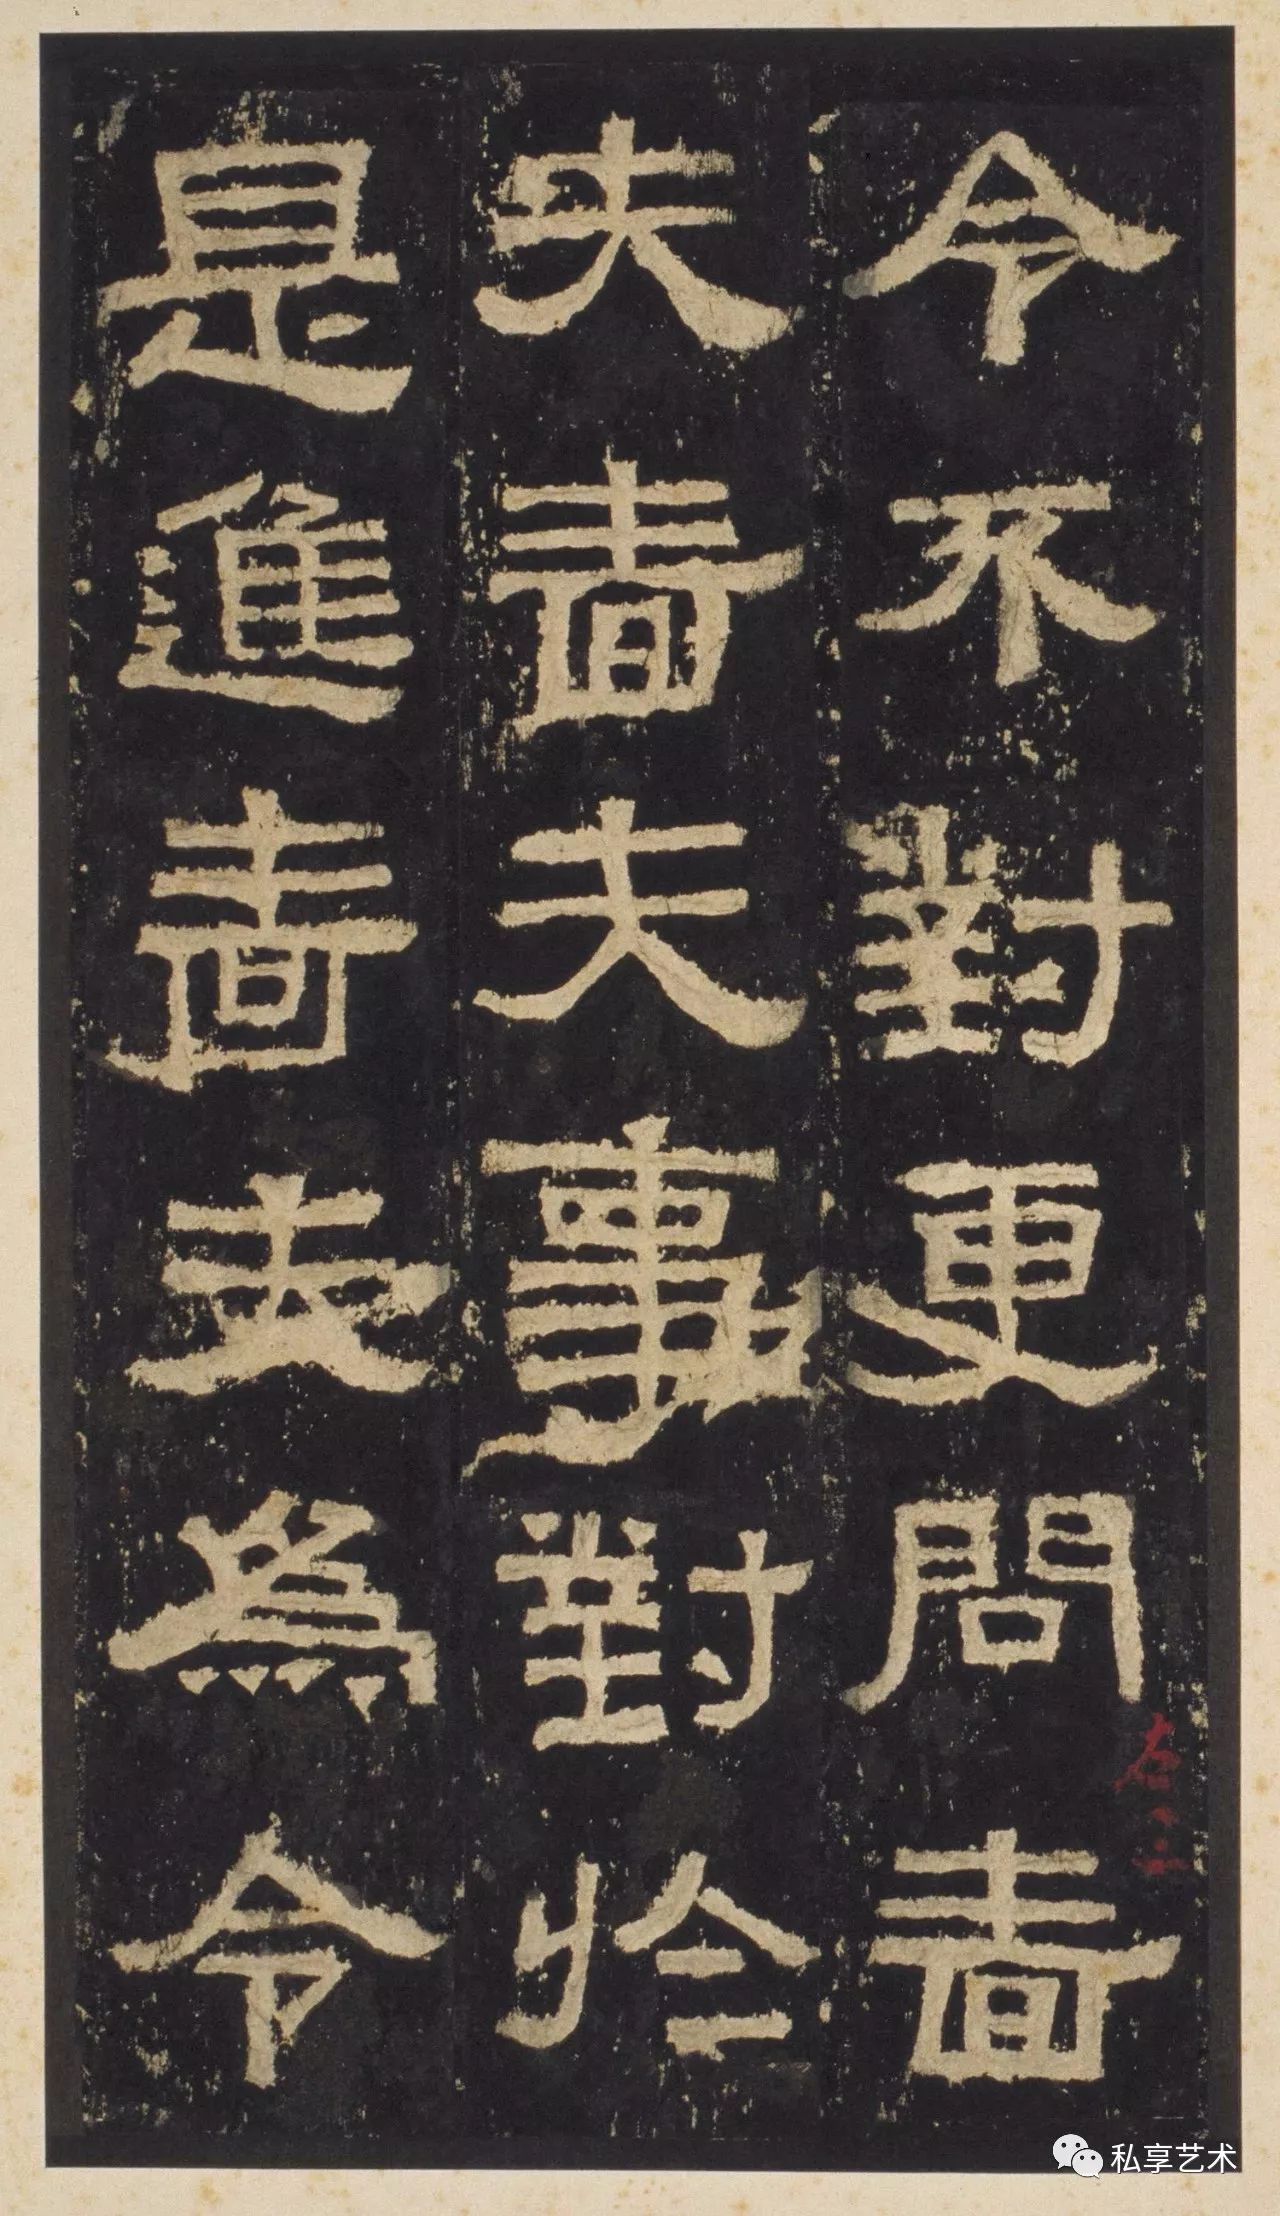 令不對更問嗇
夫嗇夫事對於
是進嗇夫為令
私享艺术